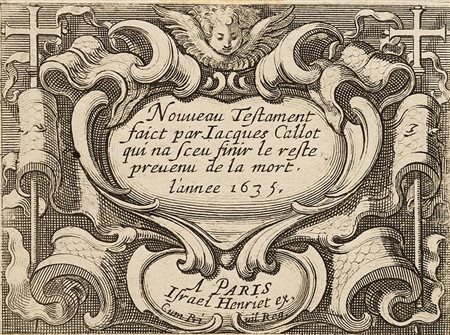 Nouueau Testament
faict par Iacques Callot
qui na sceu finir le reste
preuenu de la mort.
lannee 1635.
A PARIS
Israel Henriet ex.
Cum Pri uil Reg.